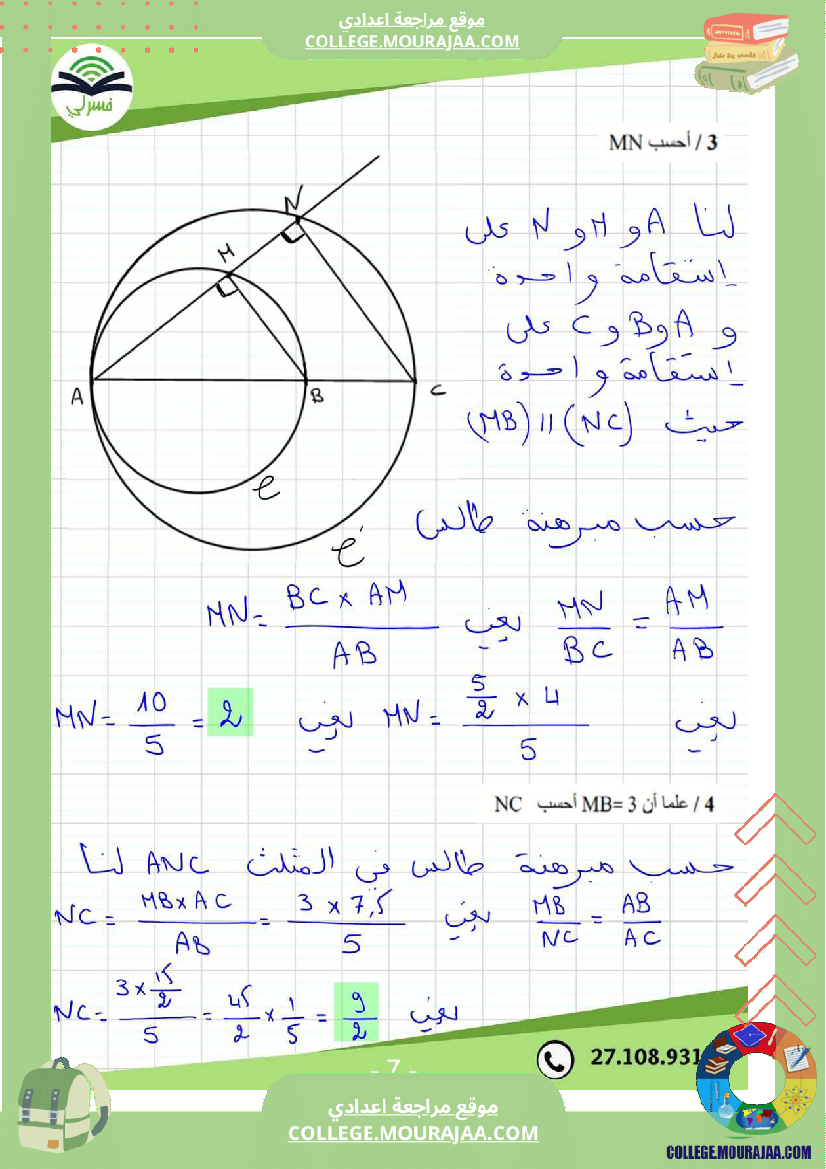 موقع مراجعة اعدادي
COLLEGE.MOURAJAA.COM
فسرلي
3 / أحسب MN
لنا A و M و N على
إستقامة واحدة
و A و B و C على
إستقامة واحدة
حيث (MB) // (NC)
N
M
A
B
C
حسب مبرهنة طالس
MN/BC = AM/AB يعني MN = BC × AM / AB
يعني MN = 5/2 × 4 / 5 يعني MN = 10/5 = 2
4 / علما أن MB= 3 أحسب NC
حسب مبرهنة طالس في المثلث ANC لنا
MB/NC = AB/AC يعني NC = MB × AC / AB = 3 × 7,5 / 5
يعني NC = 3 × 15/2 / 5 = 45/2 × 1/5 = 9/2
27.108.931
- 7 -
موقع مراجعة اعدادي
COLLEGE.MOURAJAA.COM
COLLEGE.MOURAJAA.COM